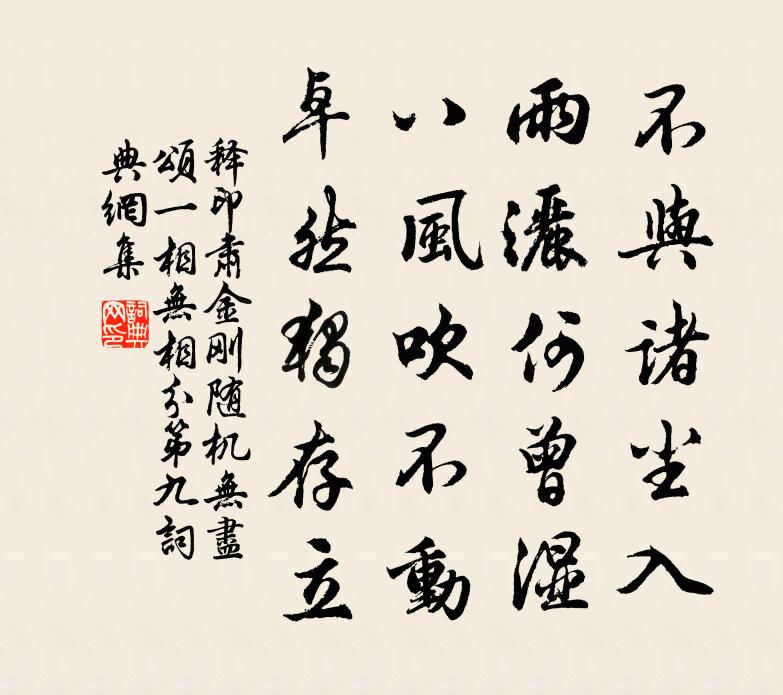 不與諸尘入
雨灑何曾湿
八風吹不動
卓然獨存立
释印肅金刚随机無盡
頌一相無相分第九詞
典網集
詞典网印